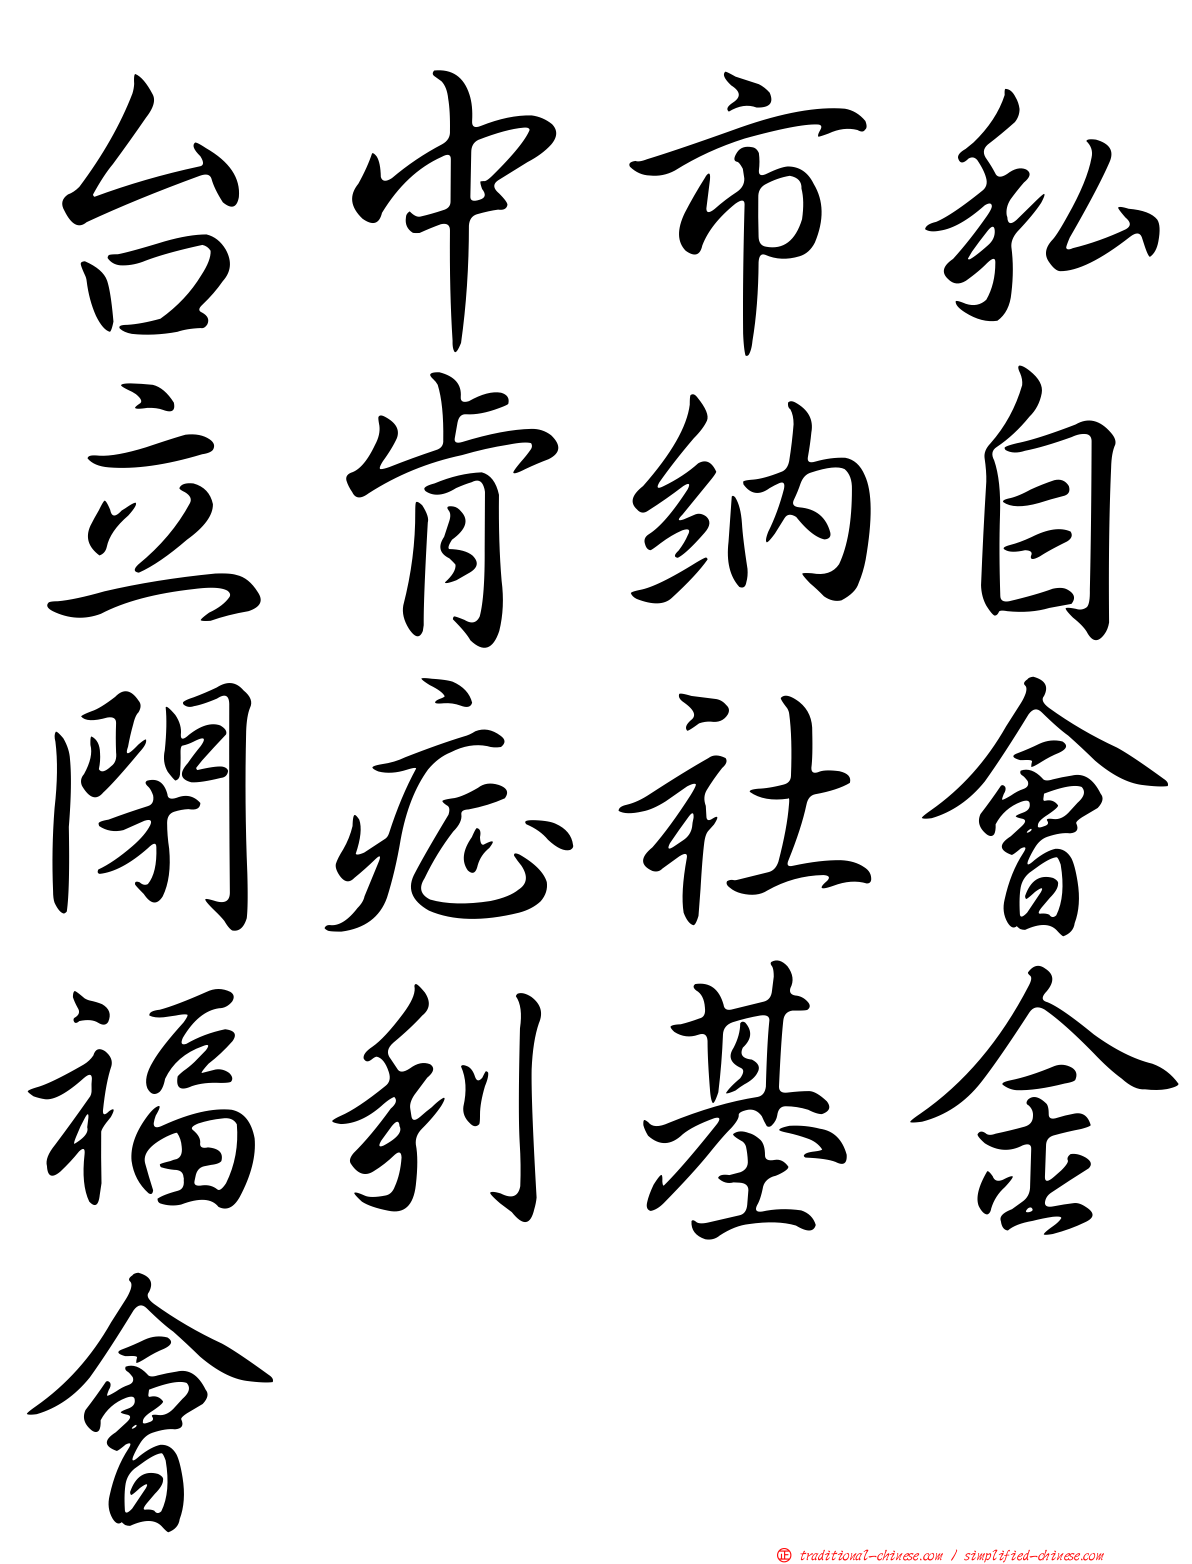 台中市私
立肯納自
閉症社會
福利基金
會
正 traditional-chinese.com / simplified-chinese.com